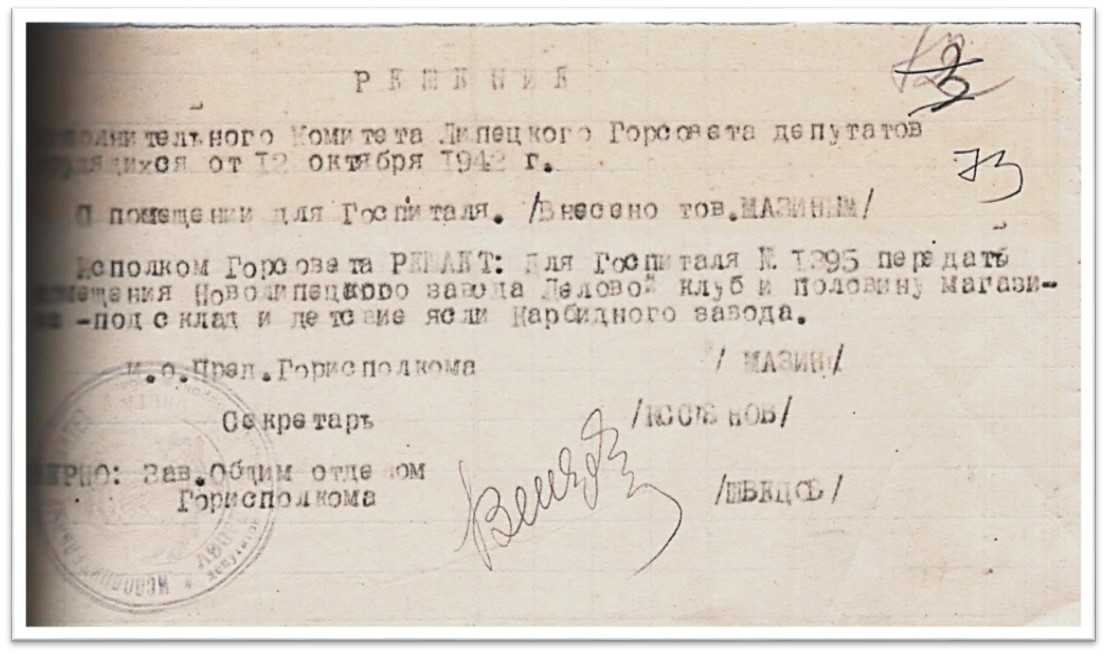 РЕШЕНИЕ
сполнительного Комитета Липецкого Горсовета депутатов
рудящихся от 12 октября 1942 г.
О помещении для Госпиталя. /Внесено тов.МАЗИНЫМ/
Исполком Горсовета РЕШАЕТ: Для Госпиталя № 1395 передать
омещения Новолипецкого завода Деловой клуб и половину магази-
-под склад и детские ясли Карбидного завода.
И.о.Пред.Горисполкома / МАЗИН/
Секретарь
ЕРНО: Зав.Общим отделом
Горисполкома /ШВЕЦОВ/
73